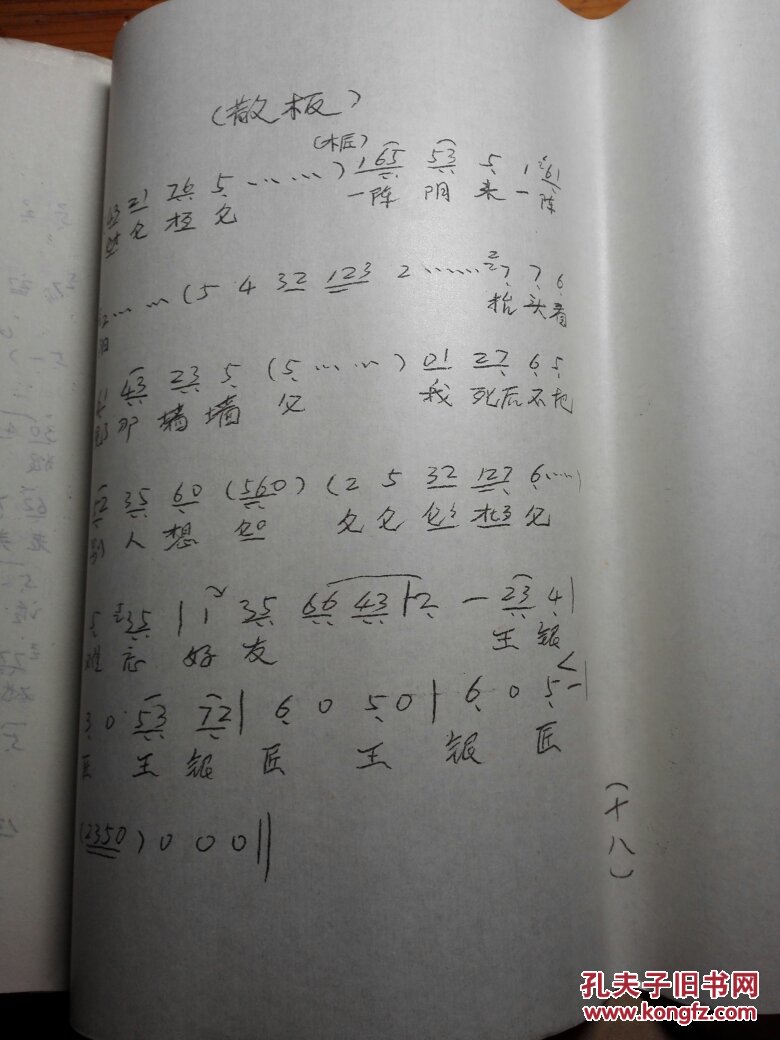 (散板)
(木匠)
21 26 5 ……) 1 65 53 5 1 61
仓 枉 仓 一阵 阴 来 一 阵
2 …… (5 4 32 123 2 …… 7 7 6
抬 头 看
43 23 5 (5 ……) 01 27 6 5
那 墙 墙 仓 我 死后 不 把
52 35 60 (560) (2 5 32 127 6 ……
别 人 想 仓 仓
5 35 | 1 35 66 43 | 2 - 23 4 |
忘 好 友 王 银
3 0 53 72 | 6 0 5 0 | 6 0 5 - |
匠 王 银 匠 王 银 匠
(2350) 0 0 0 ||
(十八)
孔夫子旧书网
www.kongfz.com